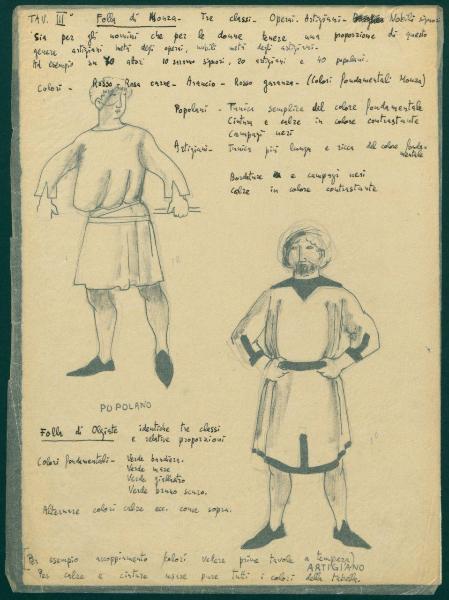 TAV. III° Folla di Monza - Tre classi - Operai, Artigiani - Nobili signori
Sia per gli uomini che per le donne tenere una proporzione di questo
genere artigiani metà degli operai, nobili metà degli artigiani.
Ad esempio su 70 attori 10 saranno signori, 20 artigiani e 40 popolani.
Colori - Rosso - Rosa carne - Arancio - Rosso garanza - (Colori fondamentali Monza)
Popolani - Tunica semplice del colore fondamentale
Cintura e calze in colore contrastante
Campagi neri
Artigiani - Tunica più lunga e ricca del colore fonda-
mentale
Bordature e campagi neri
Calze in colore contrastante
POPOLANO
Folla di Olgiate identiche tre classi
e relative proporzioni
Colori fondamentali - Verde bandiera.
Verde mare
Verde giallastro
Verde bruno scuro.
Alternare colori calze ecc. come sopra.
(Per esempio accoppiamento colori vedere prime tavole a tempera)
ARTIGIANO
Per calze e cinture usare pure tutti i colori della tabella.